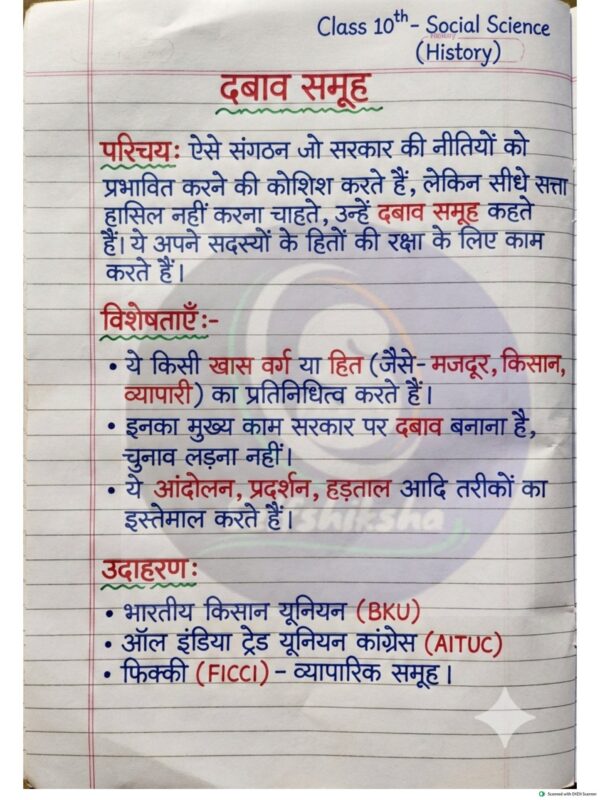 Class 10th - Social Science
(History)
दबाव समूह
परिचय: ऐसे संगठन जो सरकार की नीतियों को
प्रभावित करने की कोशिश करते हैं, लेकिन सीधे सत्ता
हासिल नहीं करना चाहते, उन्हें दबाव समूह कहते
हैं। ये अपने सदस्यों के हितों की रक्षा के लिए काम
करते हैं।
विशेषताएँ:-
• ये किसी खास वर्ग या हित (जैसे- मजदूर, किसान,
व्यापारी) का प्रतिनिधित्व करते हैं।
• इनका मुख्य काम सरकार पर दबाव बनाना है,
चुनाव लड़ना नहीं।
• ये आंदोलन, प्रदर्शन, हड़ताल आदि तरीकों का
इस्तेमाल करते हैं।
उदाहरण:
• भारतीय किसान यूनियन (BKU)
• ऑल इंडिया ट्रेड यूनियन कांग्रेस (AITUC)
• फिक्की (FICCI) - व्यापारिक समूह।